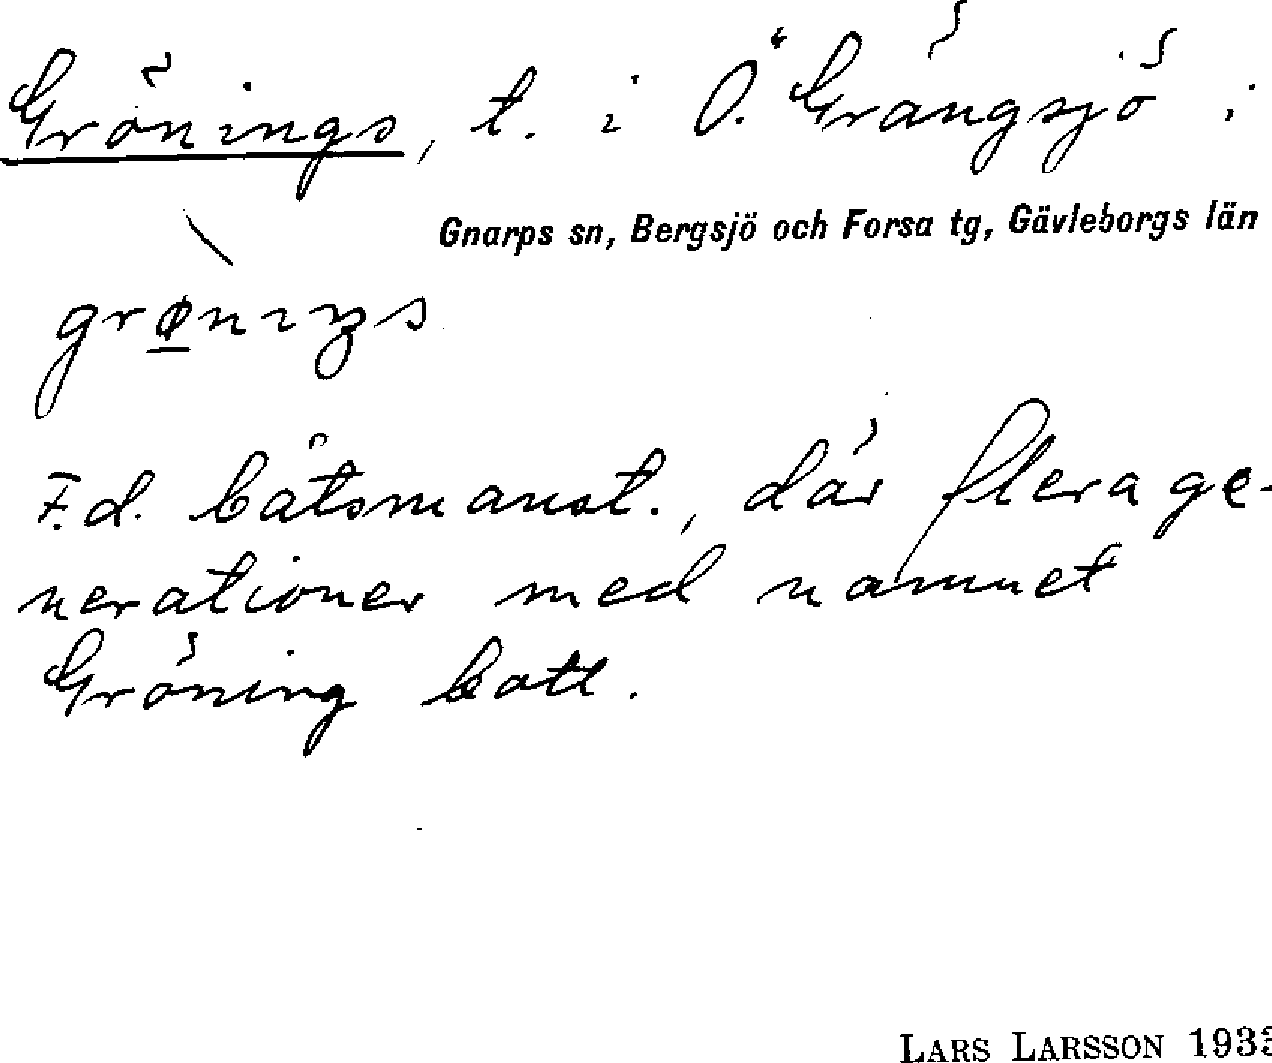 Grönings, t. i Ö. Grängsjö i
Gnarps sn, Bergsjö och Forsa tg, Gävleborgs län
F.d. båtsmanst., där flera ge-
nerationer med namnet
Gröning bott.
LARS LARSSON